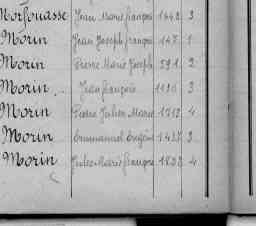 Morfouasse Jean Marie françois 1642 3
Morin Jean Joseph françois 147 1
Morin Pierre Marie Joseph 591 2
Morin Jean françois 1196 3
Morin Pierre Julien Marie 1712 4
Morin Emmanuel Eugène 1427 3
Morin Jules Marie françois 1892 4